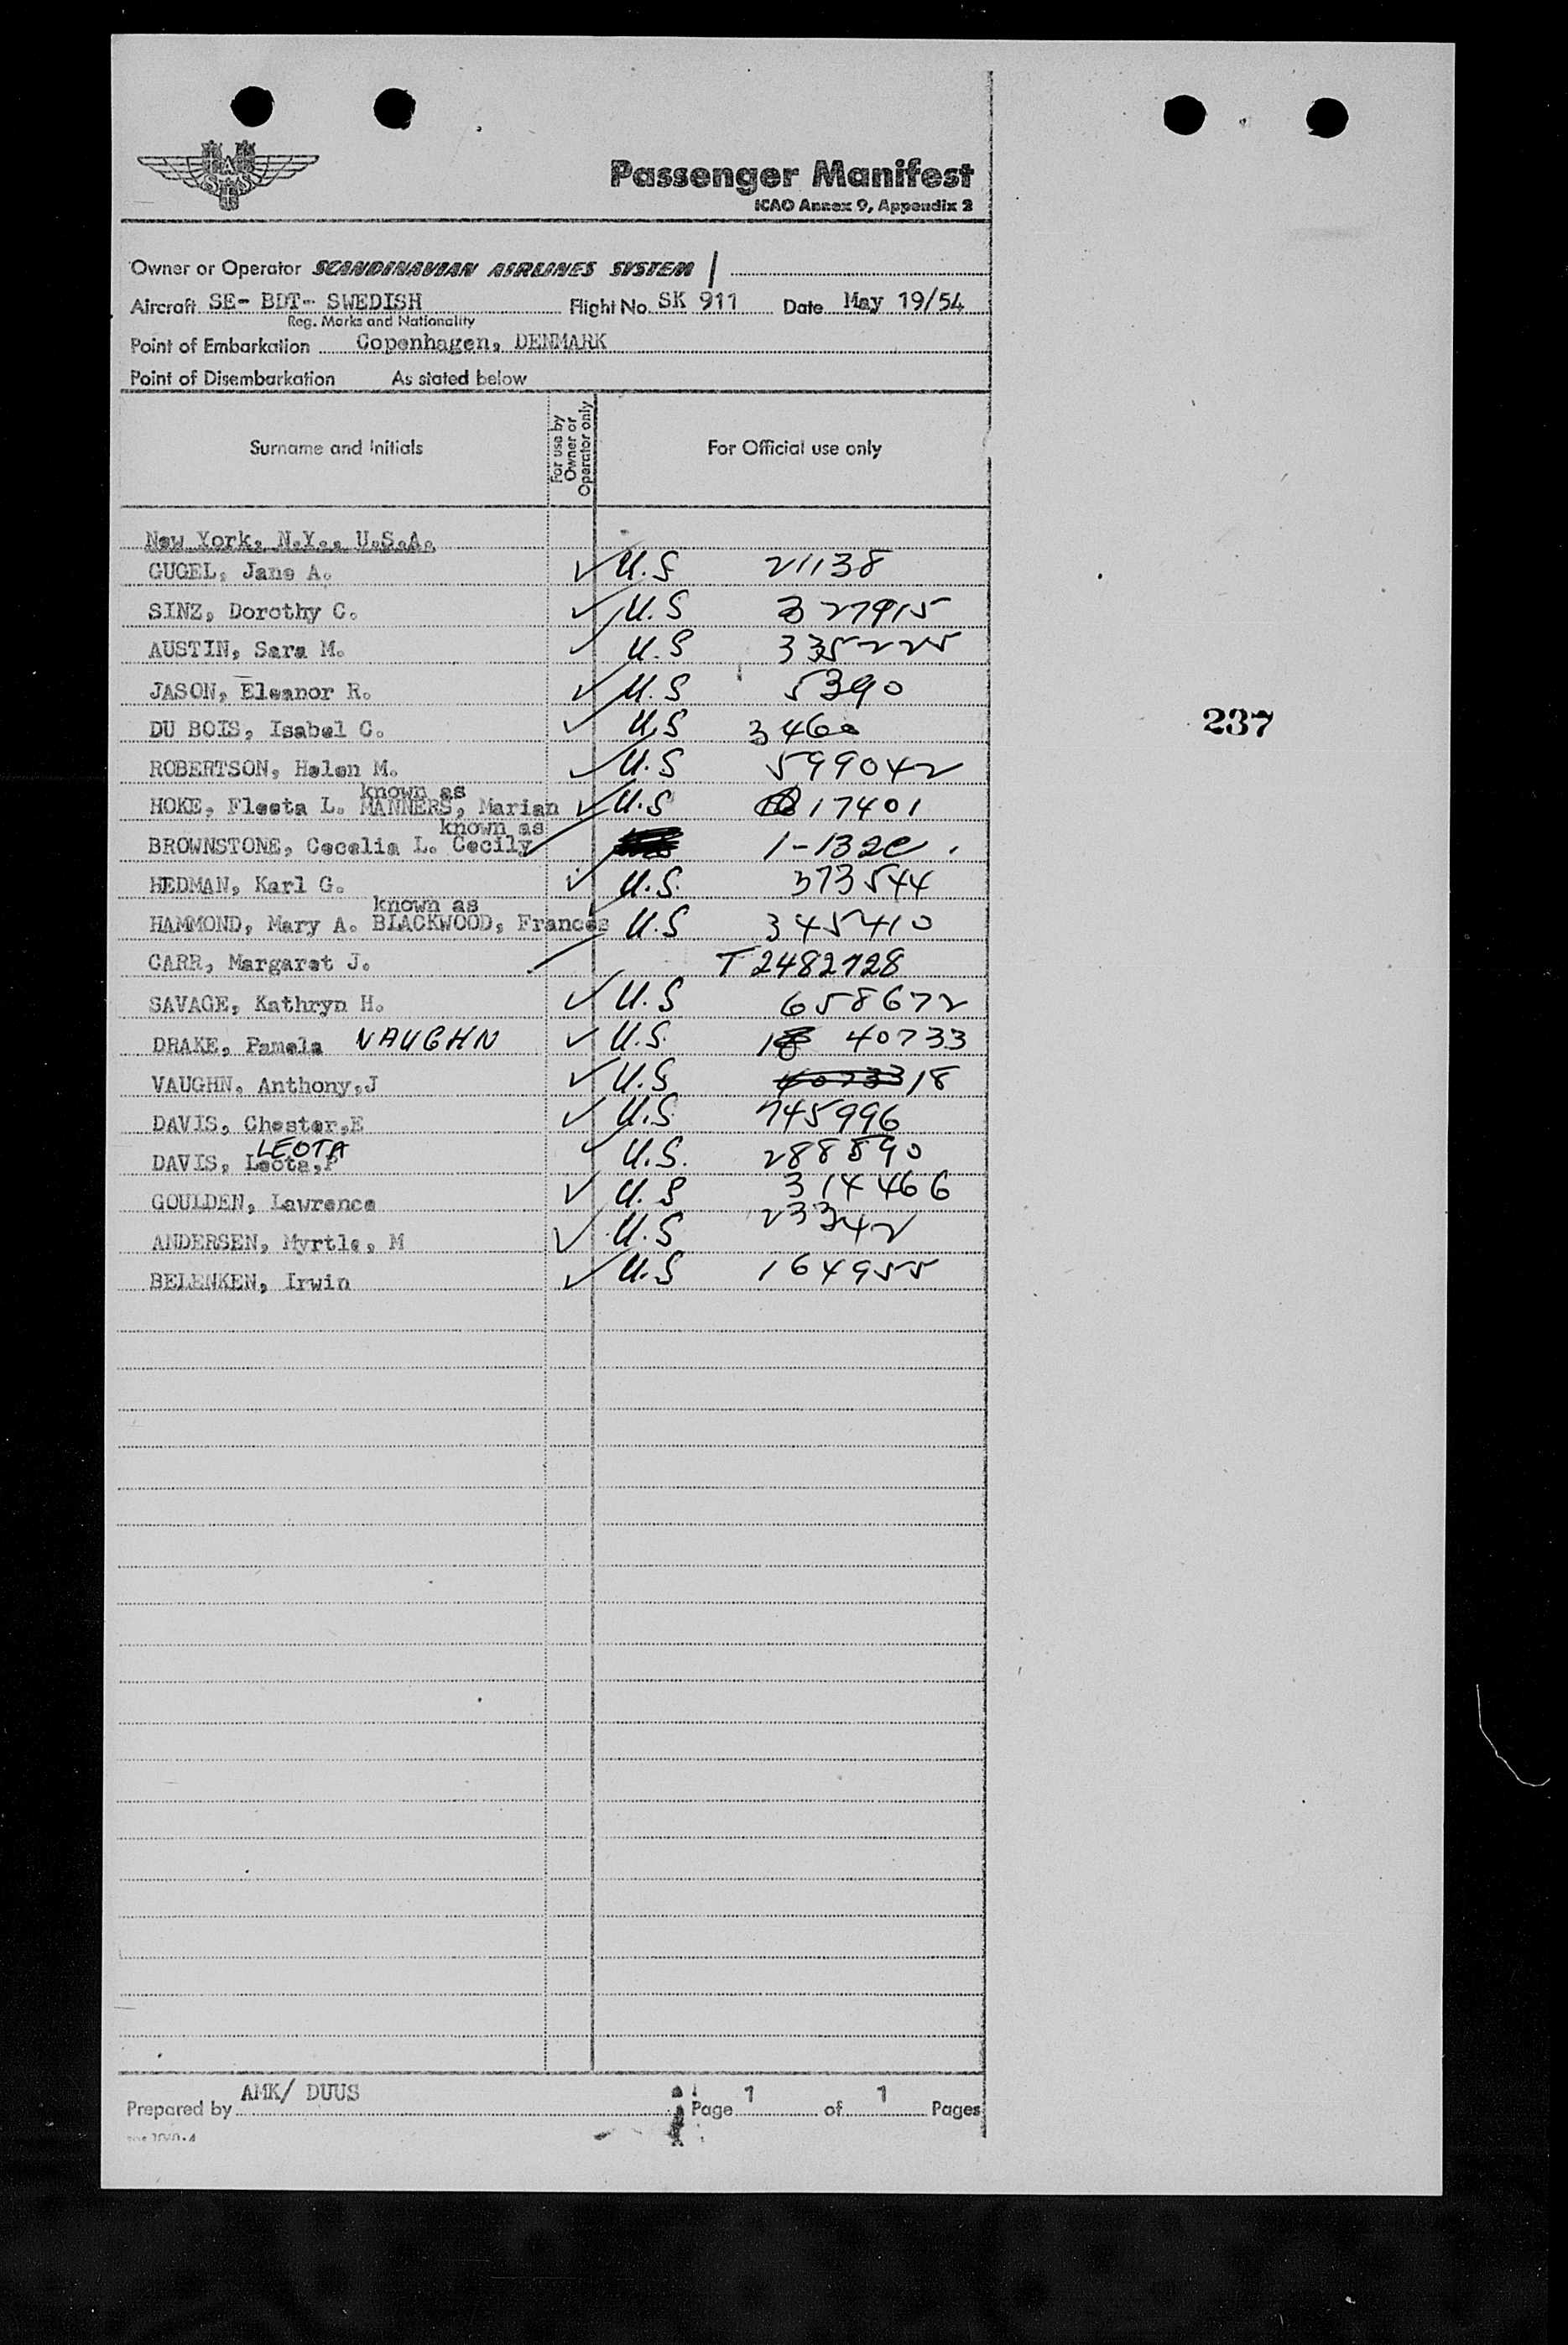 SAS
Passenger Manifest
ICAO Annex 9, Appendix 2
Owner or Operator SCANDINAVIAN AIRLINES SYSTEM
Aircraft SE- BDT- SWEDISH Flight No. SK 911 Date May 19/54
Reg. Marks and Nationality
Point of Embarkation Copenhagen, DENMARK
Point of Disembarkation As stated below
Surname and Initials For use by Owner or Operator only For Official use only
New York, N.Y., U.S.A.
GUGEL, Jane A. ✓ U.S 21138
SINZ, Dorothy C. ✓ U.S 327915
AUSTIN, Sara M. ✓ U.S 335225
JASON, Eleanor R. ✓ U.S 5390
237
DU BOIS, Isabel C. ✓ U.S 3460
ROBERTSON, Helen M. ✓ U.S 599042
known as
HOKE, Fleeta L. MANNERS, Marian ✓ U.S 17401
known as
BROWNSTONE, Cecelia L. Cecily 1-132C.
HEDMAN, Karl G. ✓ U.S. 373544
known as
HAMMOND, Mary A. BLACKWOOD, Frances U.S 345410
CARR, Margaret J. T 2482728
SAVAGE, Kathryn H. ✓ U.S 658672
DRAKE, Pamela VAUGHN ✓ U.S. 40733
VAUGHN, Anthony,J ✓ U.S 40733 18
DAVIS, Chester,E ✓ U.S. 745996
LEOTA
DAVIS, Leota,P ✓ U.S. 288890
GOULDEN, Lawrence ✓ U.S 314466
ANDERSEN, Myrtle, M ✓ U.S 23342
BELENKEN, Irwin ✓ U.S 164955
Prepared by AMK/ DUUS Page 1 of 1 Pages